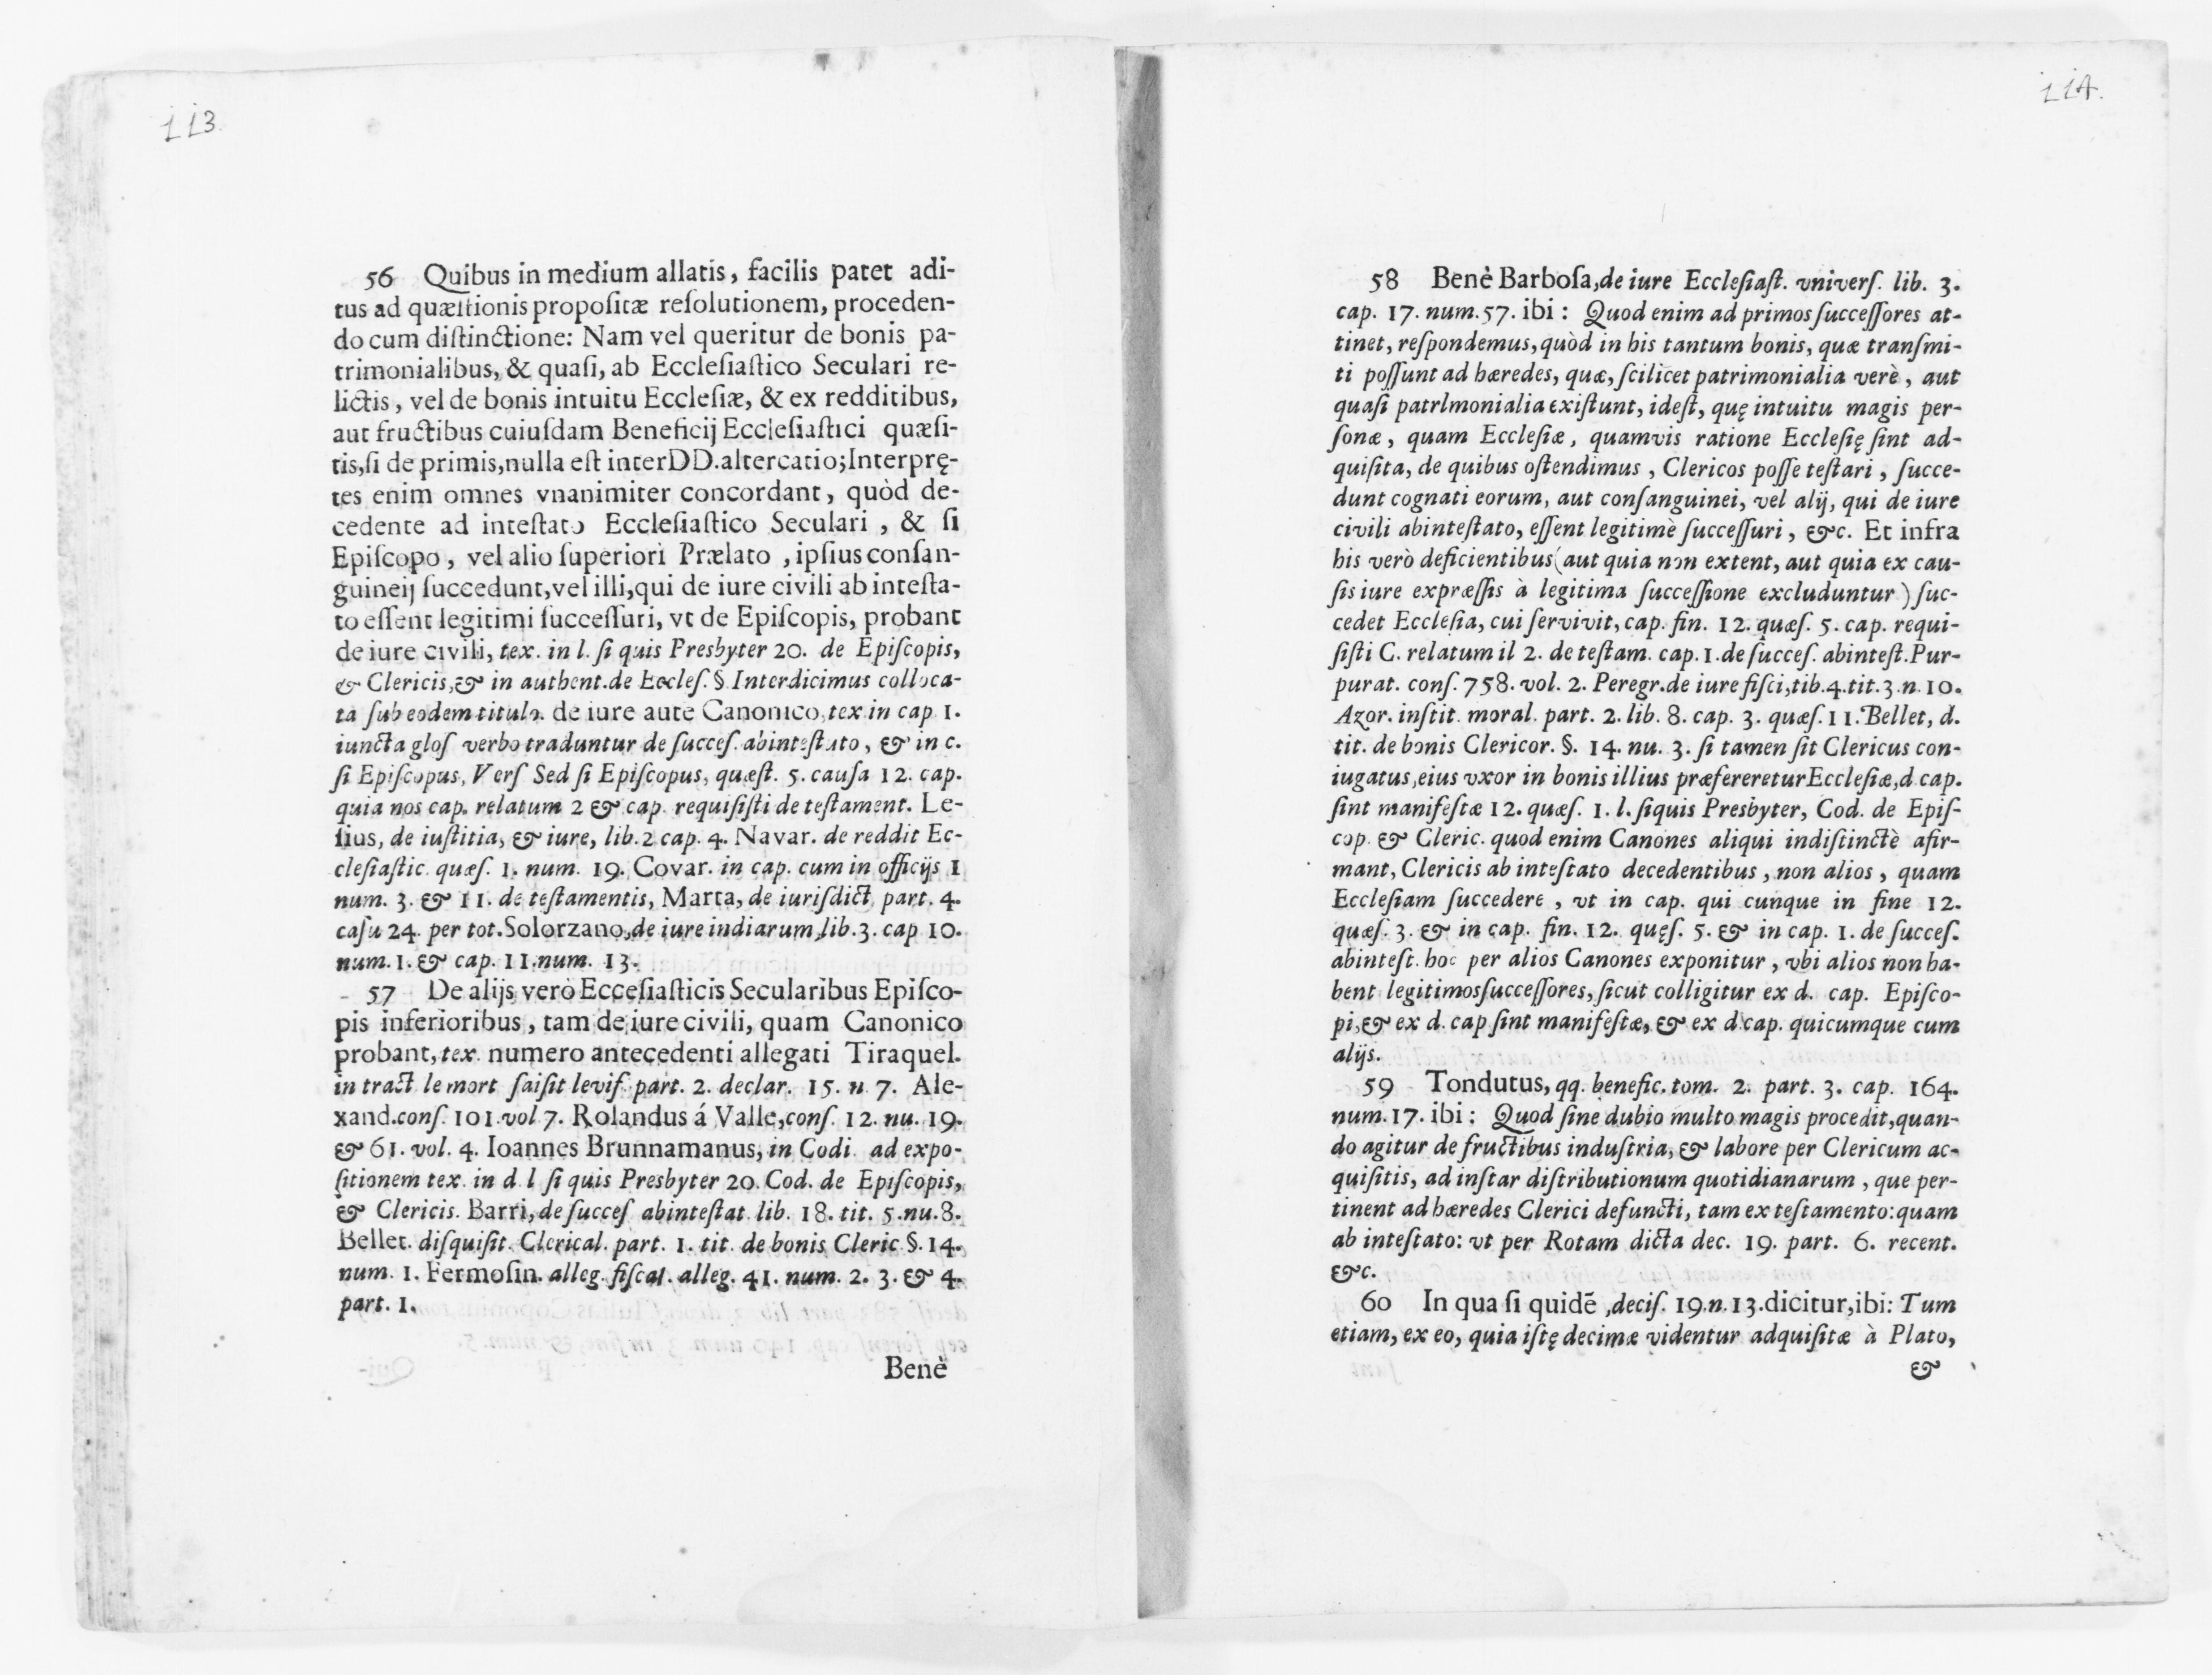 113.
56 Quibus in medium allatis, facilis patet adi-
tus ad quæstionis propositæ resolutionem, proceden-
do cum distinctione: Nam vel queritur de bonis pa-
trimonialibus, & quasi, ab Ecclesiastico Seculari re-
lictis, vel de bonis intuitu Ecclesiæ, & ex redditibus,
aut fructibus cuiusdam Beneficij Ecclesiastici quæsi-
tis, si de primis, nulla est inter DD. altercatio; Interprę-
tes enim omnes vnanimiter concordant, quòd de-
cedente ad intestato Ecclesiastico Seculari, & si
Episcopo, vel alio superiori Prælato, ipsius consan-
guineij succedunt, vel illi, qui de iure civili ab intesta-
to essent legitimi successuri, vt de Episcopis, probant
de iure civili, tex. in l. si quis Presbyter 20. de Episcopis,
& Clericis, & in authent. de Eccles. § Interdicimus colloca-
ta sub eodem titulo. de iure aute Canonico, tex in cap 1.
iuncta glos verbo traduntur de succes. abintestato, & in c.
si Episcopus, Vers Sed si Episcopus, quæst. 5. causa 12. cap.
quia nos cap. relatum 2 & cap. requisisti de testament. Le-
sius, de iustitia, & iure, lib. 2 cap. 4. Navar. de reddit Ec-
clesiastic. quæs. 1. num. 19. Covar. in cap. cum in officijs 1
num. 3. & 11. de testamentis, Marta, de iurisdict part. 4.
casu 24. per tot. Solorzano, de iure indiarum, lib. 3. cap 10.
num. 1. & cap. 11. num. 13.
57 De alijs verò Eccesiasticis Secularibus Episco-
pis inferioribus, tam de iure civili, quam Canonico
probant, tex. numero antecedenti allegati Tiraquel.
in tract le mort saisit levif part. 2. declar. 15. n 7. Ale-
xand. cons. 101. vol 7. Rolandus á Valle, cons. 12. nu. 19.
& 61. vol. 4. Ioannes Brunnamanus, in Codi ad expo-
sitionem tex. in d. l si quis Presbyter 20. Cod. de Episcopis,
& Clericis. Barri, de succes abintestat. lib. 18. tit. 5. nu. 8.
Bellet. disquisit. Clerical. part. 1. tit. de bonis Cleric §. 14.
num. 1. Fermosin. alleg. fiscal. alleg. 41. num. 2. 3. & 4.
part. 1.
Benè
114.
58 Benè Barbosa, de iure Ecclesiast. vnivers. lib. 3.
cap. 17. num. 57. ibi: Quod enim ad primos successores at-
tinet, respondemus, quòd in his tantum bonis, quæ transmi-
ti possunt ad hæredes, quæ, scilicet patrimonialia verè, aut
quasi patrImonialia existunt, idest, quę intuitu magis per-
sonæ, quam Ecclesiæ, quamvis ratione Ecclesię sint ad-
quisita, de quibus ostendimus, Clericos posse testari, succe-
dunt cognati eorum, aut consanguinei, vel alij, qui de iure
civili abintestato, essent legitimè successuri, &c. Et infra
his verò deficientibus (aut quia non extent, aut quia ex cau-
sis iure expræssis à legitima successione excluduntur) suc-
cedet Ecclesia, cui servivit, cap. fin. 12. quæs. 5. cap. requi-
sisti C. relatum il 2. de testam. cap. 1. de succes. abintest. Pur-
purat. cons. 758. vol. 2. Peregr. de iure fisci, tib. 4. tit. 3. n. 10.
Azor. instit. moral. part. 2. lib. 8. cap. 3. quæs. 11. Bellet, d.
tit. de bonis Clericor. §. 14. nu. 3. si tamen sit Clericus con-
iugatus, eius vxor in bonis illius præfereretur Ecclesiæ, d. cap.
sint manifestæ 12. quæs. 1. l. siquis Presbyter, Cod. de Epis-
cop. & Cleric. quod enim Canones aliqui indistinctè afir-
mant, Clericis ab intestato decedentibus, non alios, quam
Ecclesiam succedere, vt in cap. qui cunque in fine 12.
quæs. 3. & in cap. fin. 12. quęs. 5. & in cap. 1. de succes.
abintest. hoc per alios Canones exponitur, vbi alios non ha-
bent legitimos successores, sicut colligitur ex d. cap. Episco-
pi, & ex d. cap sint manifestæ, & ex d. cap. quicumque cum
alijs.
59 Tondutus, qq. benefic. tom. 2. part. 3. cap. 164.
num. 17. ibi: Quod sine dubio multo magis procedit, quan-
do agitur de fructibus industria, & labore per Clericum ac-
quisitis, ad instar distributionum quotidianarum, que per-
tinent ad hæredes Clerici defuncti, tam ex testamento: quam
ab intestato: vt per Rotam dicta dec. 19. part. 6. recent.
&c.
60 In qua si quidē, decis. 19. n. 13. dicitur, ibi: Tum
etiam, ex eo, quia istę decimæ videntur adquisitæ à Plato,
&